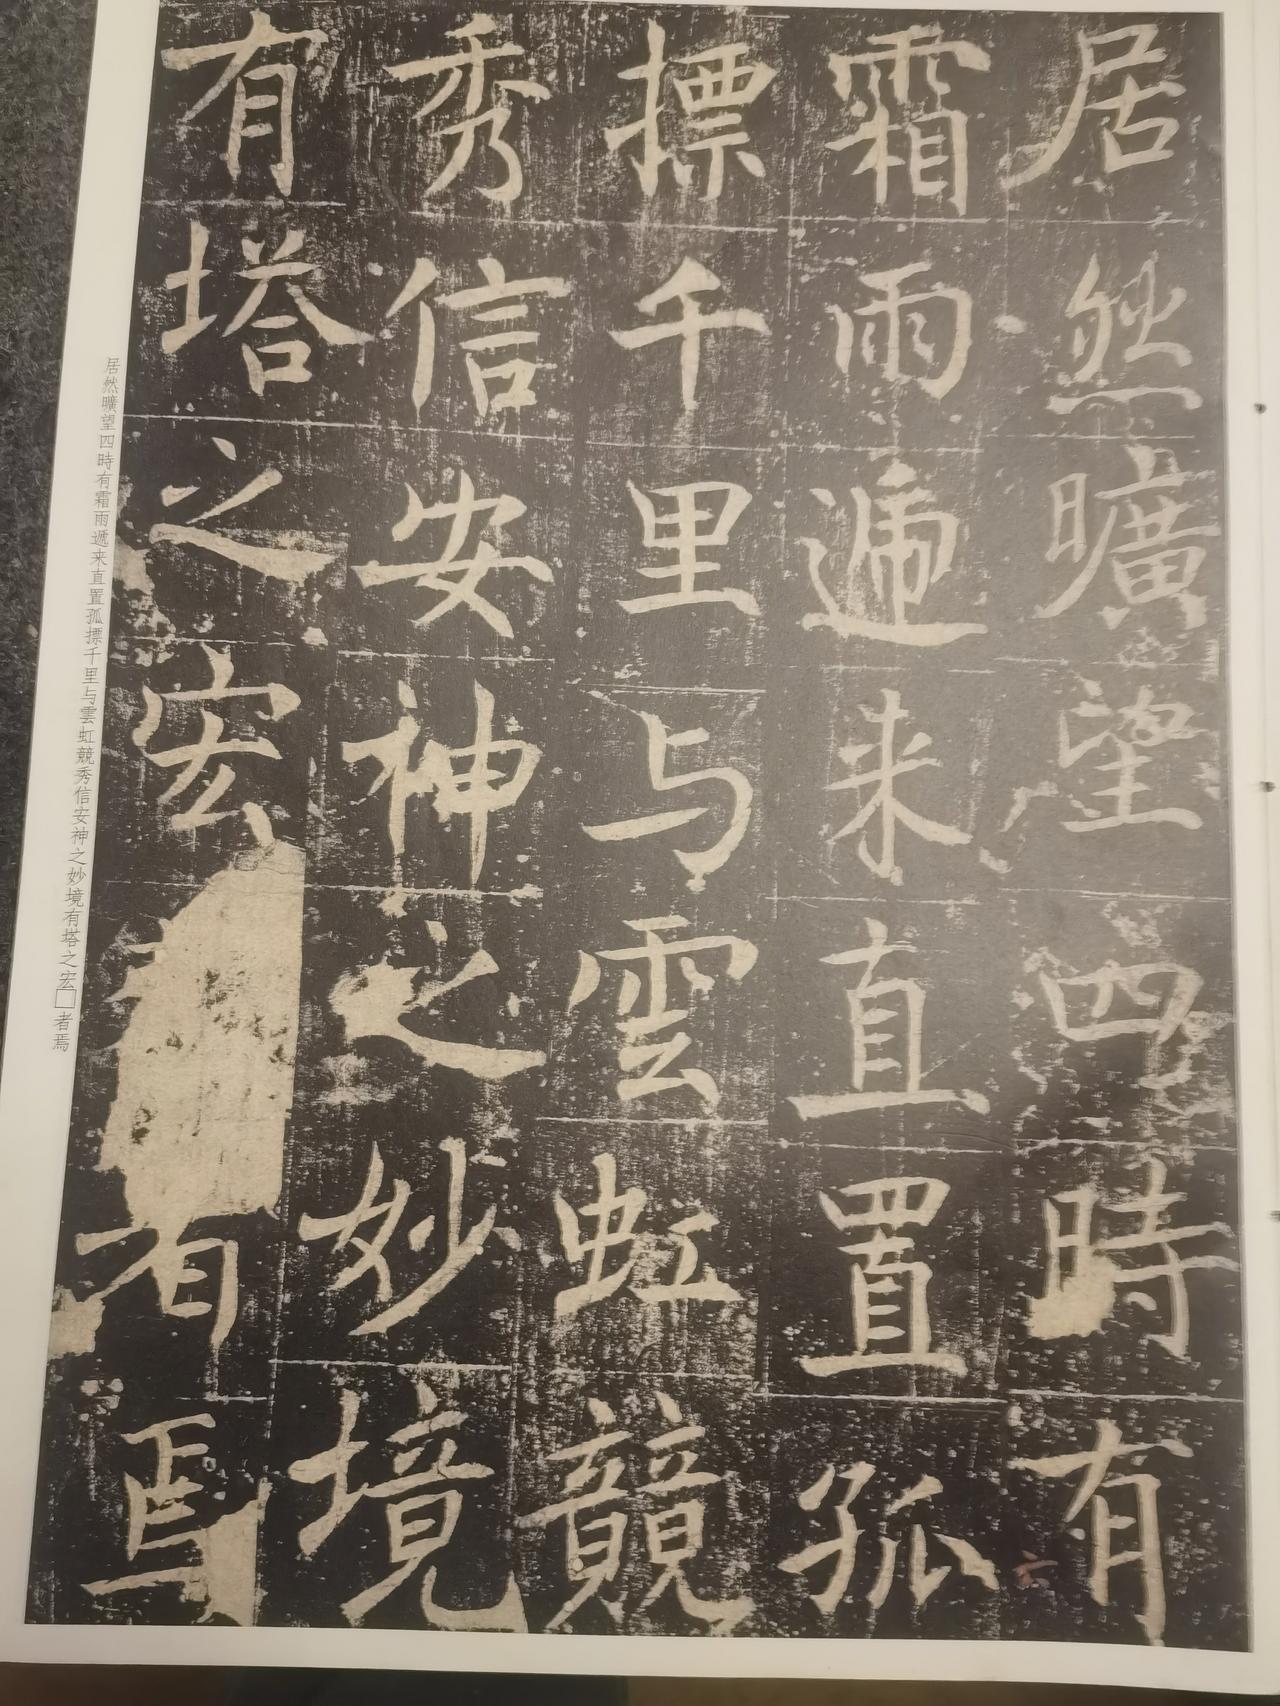 居然曠望四時有
霜雨遞来直置孤
摽千里与雲虹競
秀信安神之妙境
有塔之宏者焉
六
居然曠望四時有霜雨遞来直置孤摽千里与雲虹競秀信安神之妙境有塔之宏□者焉